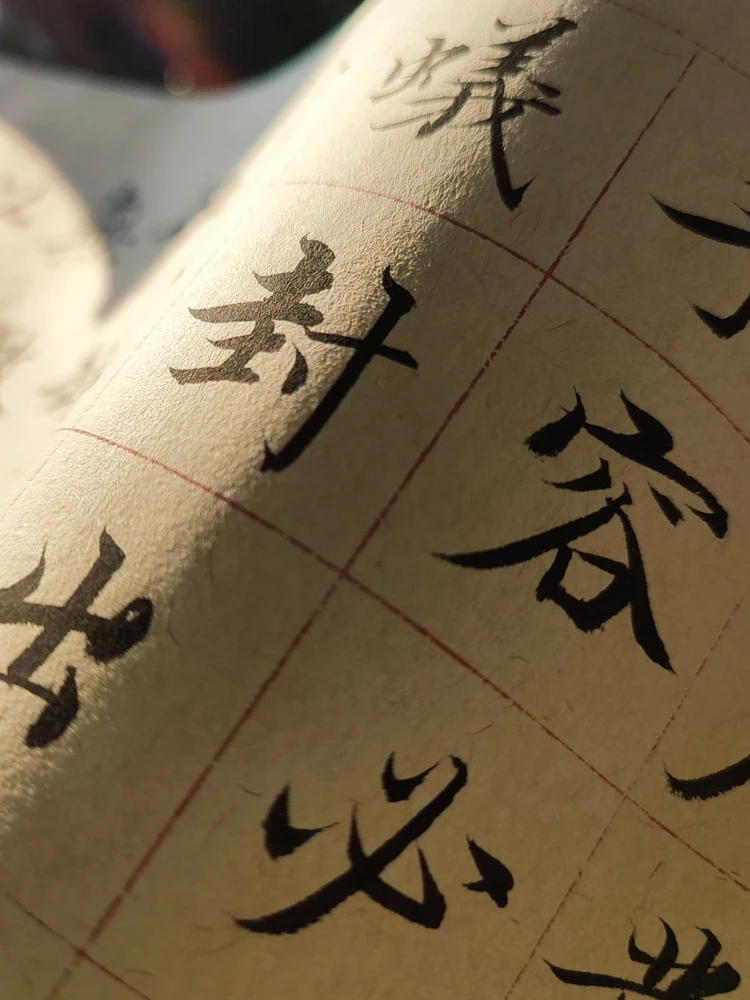 容必
蟻封出